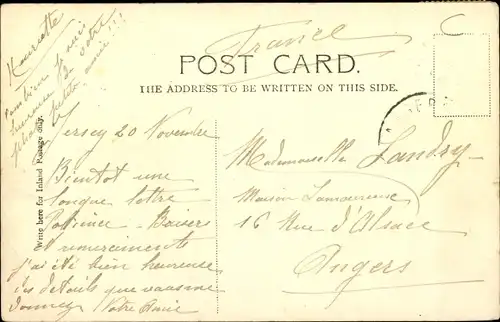 Henriette
Combien je suis
heureuse
petite amie!!!
France
C
POST CARD.
THE ADDRESS TO BE WRITTEN ON THIS SIDE.
Write here for Inland Postage only.
Jersey 20 Novembre
Bientot une
longue lettre
Patience - Baisers
et remerciements
j'ai été bien heureuse
des details que
donnez Votre Amie
Mademoiselle Landry
Maison Lamoureuse
16 Rue d'Alsace
Angers